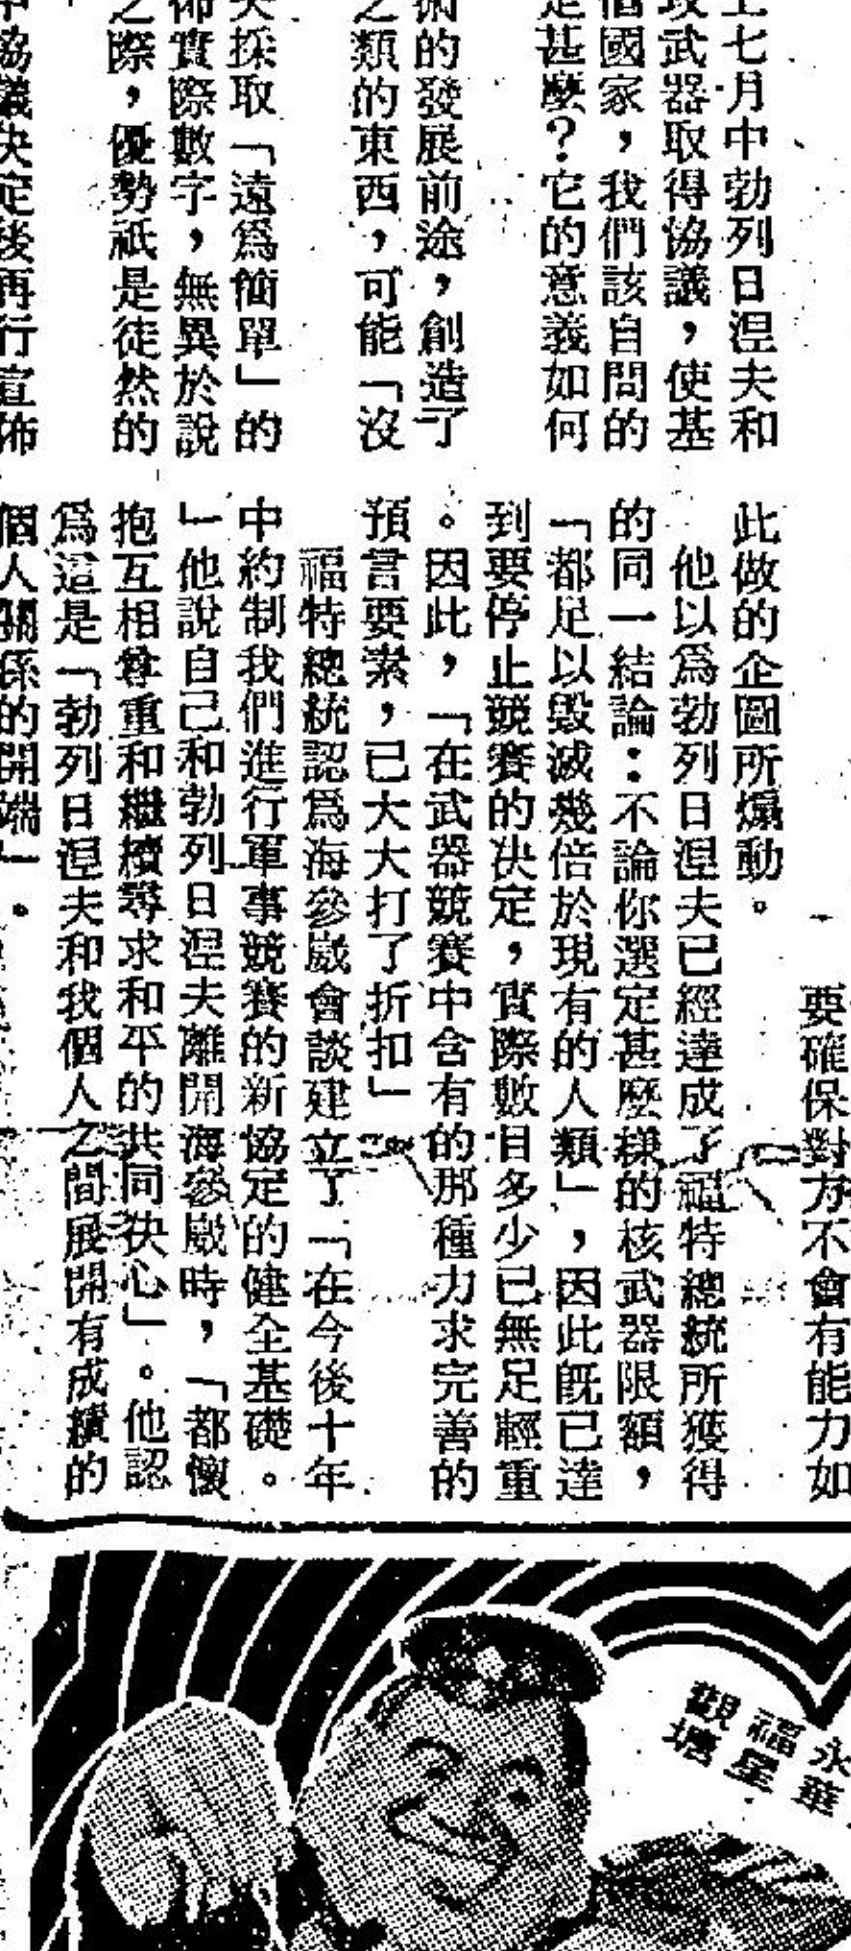 上七月中勃列日涅夫和
攻武器取得協議，使基
個國家，我們該自問的
是甚麼？它的意義如何
術的發展前途，創造了
之類的東西，可能「沒
夫採取「遠爲簡單」的
佈實際數字，無異於說
之際，優勢祇是徒然的
中協議決定後再行宣佈
要確保對方不會有能力如
此做的企圖所煽動。
他以爲勃列日涅夫已經達成了福特總統所獲得
的同一結論：不論你選定甚麼樣的核武器限額，
「都足以毀滅幾倍於現有的人類」，因此既已達
到要停止競賽的決定，實際數目多少已無足輕重
。因此，「在武器競賽中含有的那種力求完善的
預言要素，已大大打了折扣」
福特總統認爲海參崴會談建立了「在今後十年
中約制我們進行軍事競賽的新協定的健全基礎。
」他說自己和勃列日涅夫離開海參崴時，「都懷
抱互相尊重和繼續尋求和平的共同決心」。他認
爲這是「勃列日涅夫和我個人之間展開有成績的
個人關係的開端」。
永華
福星
觀塘